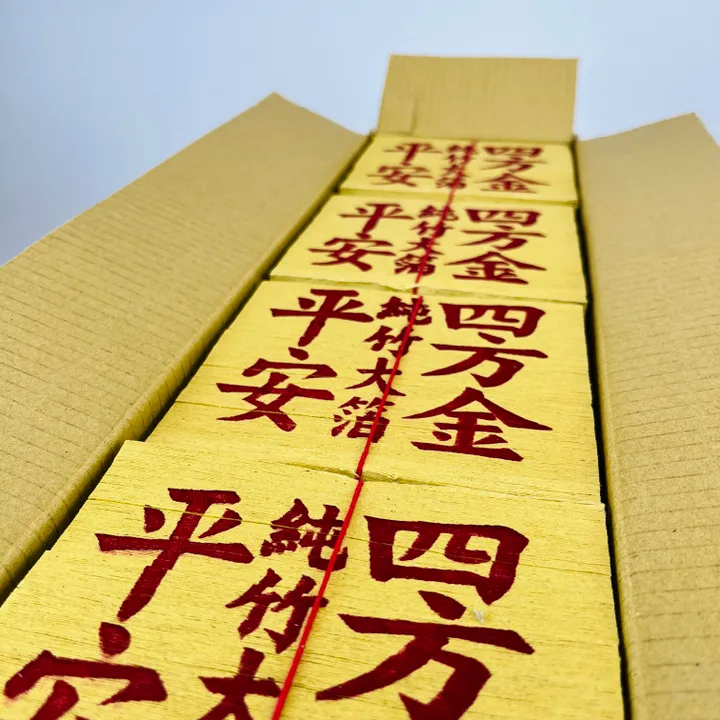 四方金
純竹大箔
平安
四方金
純竹大箔
平安
四方金
純竹大箔
平安
四方
純竹大
平安